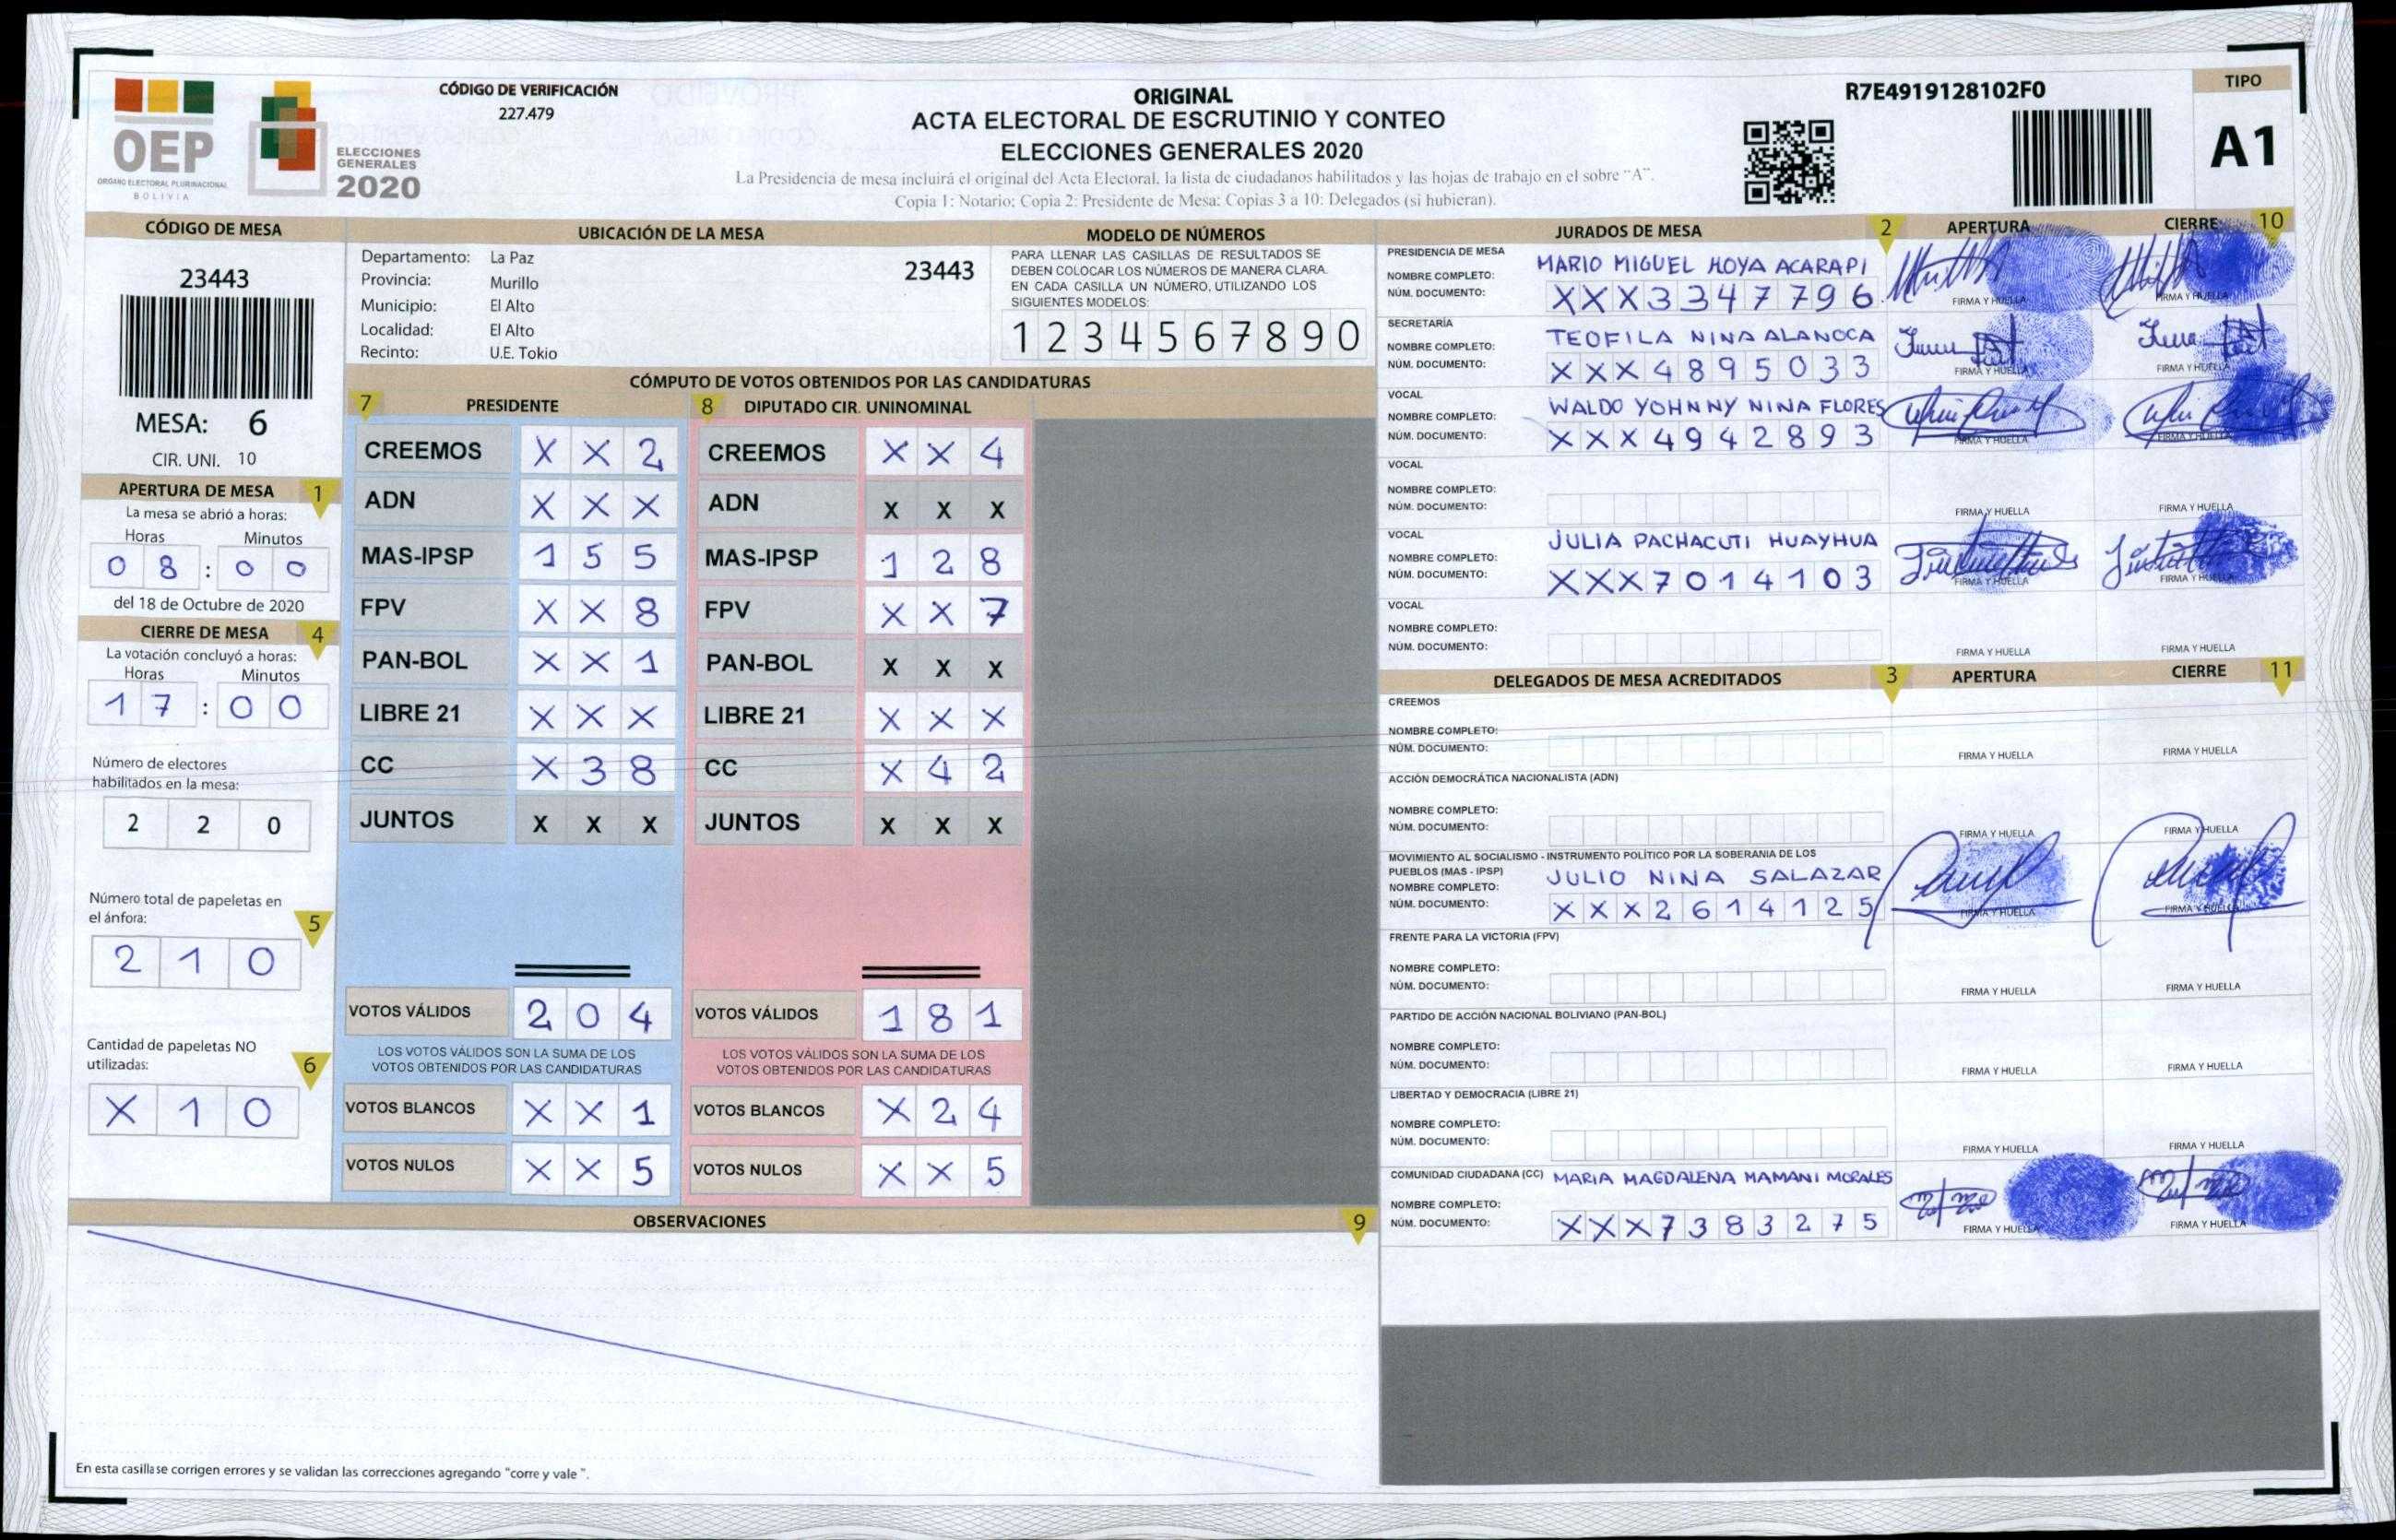 OEP
ÓRGANO ELECTORAL PLURINACIONAL
BOLIVIA
ELECCIONES
GENERALES
2020
CÓDIGO DE VERIFICACIÓN
227.479
ORIGINAL
ACTA ELECTORAL DE ESCRUTINIO Y CONTEO
ELECCIONES GENERALES 2020
La Presidencia de mesa incluirá el original del Acta Electoral, la lista de ciudadanos habilitados y las hojas de trabajo en el sobre "A".
Copia 1: Notario; Copia 2: Presidente de Mesa; Copias 3 a 10: Delegados (si hubieran).
R7E4919128102F0
TIPO
A1
CÓDIGO DE MESA
23443
MESA: 6
CIR. UNI. 10
APERTURA DE MESA 1
La mesa se abrió a horas:
Horas Minutos
0 8 : 0 0
del 18 de Octubre de 2020
CIERRE DE MESA 4
La votación concluyó a horas:
Horas Minutos
1 7 : 0 0
Número de electores
habilitados en la mesa:
2 2 0
Número total de papeletas en
el ánfora: 5
2 1 0
Cantidad de papeletas NO
utilizadas: 6
X 1 0
UBICACIÓN DE LA MESA
Departamento: La Paz
Provincia: Murillo
Municipio: El Alto
Localidad: El Alto
Recinto: U.E. Tokio
23443
MODELO DE NÚMEROS
PARA LLENAR LAS CASILLAS DE RESULTADOS SE
DEBEN COLOCAR LOS NÚMEROS DE MANERA CLARA.
EN CADA CASILLA UN NÚMERO, UTILIZANDO LOS
SIGUIENTES MODELOS:
1 2 3 4 5 6 7 8 9 0
CÓMPUTO DE VOTOS OBTENIDOS POR LAS CANDIDATURAS
7 PRESIDENTE
CREEMOS X X 2
ADN X X X
MAS-IPSP 1 5 5
FPV X X 8
PAN-BOL X X 1
LIBRE 21 X X X
CC X 3 8
JUNTOS X X X
VOTOS VÁLIDOS 2 0 4
LOS VOTOS VÁLIDOS SON LA SUMA DE LOS
VOTOS OBTENIDOS POR LAS CANDIDATURAS
VOTOS BLANCOS X X 1
VOTOS NULOS X X 5
8 DIPUTADO CIR. UNINOMINAL
CREEMOS X X 4
ADN X X X
MAS-IPSP 1 2 8
FPV X X 7
PAN-BOL X X X
LIBRE 21 X X X
CC X 4 2
JUNTOS X X X
VOTOS VÁLIDOS 1 8 1
LOS VOTOS VÁLIDOS SON LA SUMA DE LOS
VOTOS OBTENIDOS POR LAS CANDIDATURAS
VOTOS BLANCOS X 2 4
VOTOS NULOS X X 5
OBSERVACIONES 9
En esta casilla se corrigen errores y se validan las correcciones agregando "corre y vale".
JURADOS DE MESA 2 APERTURA CIERRE 10
PRESIDENCIA DE MESA
NOMBRE COMPLETO: MARIO MIGUEL MOYA ACARAPI
NÚM. DOCUMENTO: X X X 3 3 4 7 7 9 6
FIRMA Y HUELLA FIRMA Y HUELLA
SECRETARÍA
NOMBRE COMPLETO: TEOFILA NINA ALANOCA
NÚM. DOCUMENTO: X X X 4 8 9 5 0 3 3
FIRMA Y HUELLA FIRMA Y HUELLA
VOCAL
NOMBRE COMPLETO: WALDO YOHNNY NINA FLORES
NÚM. DOCUMENTO: X X X 4 9 4 2 8 9 3
FIRMA Y HUELLA FIRMA Y HUELLA
VOCAL
NOMBRE COMPLETO:
NÚM. DOCUMENTO:
FIRMA Y HUELLA FIRMA Y HUELLA
VOCAL
NOMBRE COMPLETO: JULIA PACHACUTI HUAYHUA
NÚM. DOCUMENTO: X X X 7 0 1 4 1 0 3
FIRMA Y HUELLA FIRMA Y HUELLA
VOCAL
NOMBRE COMPLETO:
NÚM. DOCUMENTO:
FIRMA Y HUELLA FIRMA Y HUELLA
DELEGADOS DE MESA ACREDITADOS 3 APERTURA CIERRE 11
CREEMOS
NOMBRE COMPLETO:
NÚM. DOCUMENTO:
FIRMA Y HUELLA FIRMA Y HUELLA
ACCIÓN DEMOCRÁTICA NACIONALISTA (ADN)
NOMBRE COMPLETO:
NÚM. DOCUMENTO:
FIRMA Y HUELLA FIRMA Y HUELLA
MOVIMIENTO AL SOCIALISMO - INSTRUMENTO POLÍTICO POR LA SOBERANIA DE LOS
PUEBLOS (MAS - IPSP)
NOMBRE COMPLETO: JULIO NINA SALAZAR
NÚM. DOCUMENTO: X X X 2 6 1 4 1 2 5
FIRMA Y HUELLA FIRMA Y HUELLA
FRENTE PARA LA VICTORIA (FPV)
NOMBRE COMPLETO:
NÚM. DOCUMENTO:
FIRMA Y HUELLA FIRMA Y HUELLA
PARTIDO DE ACCIÓN NACIONAL BOLIVIANO (PAN-BOL)
NOMBRE COMPLETO:
NÚM. DOCUMENTO:
FIRMA Y HUELLA FIRMA Y HUELLA
LIBERTAD Y DEMOCRACIA (LIBRE 21)
NOMBRE COMPLETO:
NÚM. DOCUMENTO:
FIRMA Y HUELLA FIRMA Y HUELLA
COMUNIDAD CIUDADANA (CC) MARIA MAGDALENA MAMANI MORALES
NOMBRE COMPLETO:
NÚM. DOCUMENTO: X X X 7 3 8 3 2 7 5
FIRMA Y HUELLA FIRMA Y HUELLA